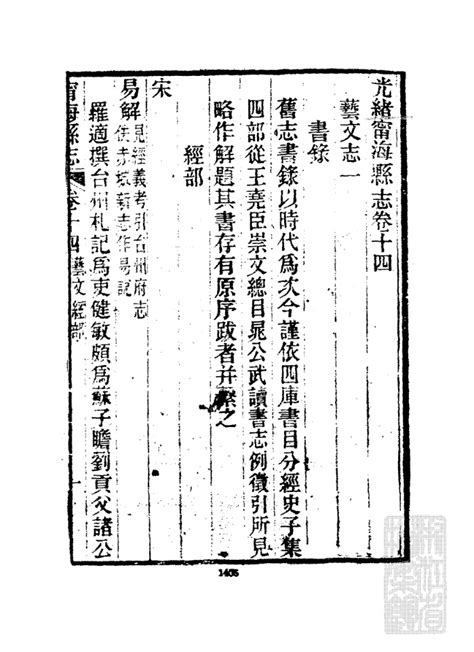 光緒甯海縣志卷十四
藝文志一
書錄
舊志書錄以時代爲次今謹依四庫書目分經史子集
四部從王堯臣崇文總目晁公武讀書志例徵引所見
略作解題其書存有原序跋者并繫之
經部
宋
易解
見經義考引台州府志
佚赤城新志作易說
羅適撰台州札記爲吏健敏頗爲蘇子瞻劉貢父諸公
甯海縣志
卷十四
藝文 經部
一
1405